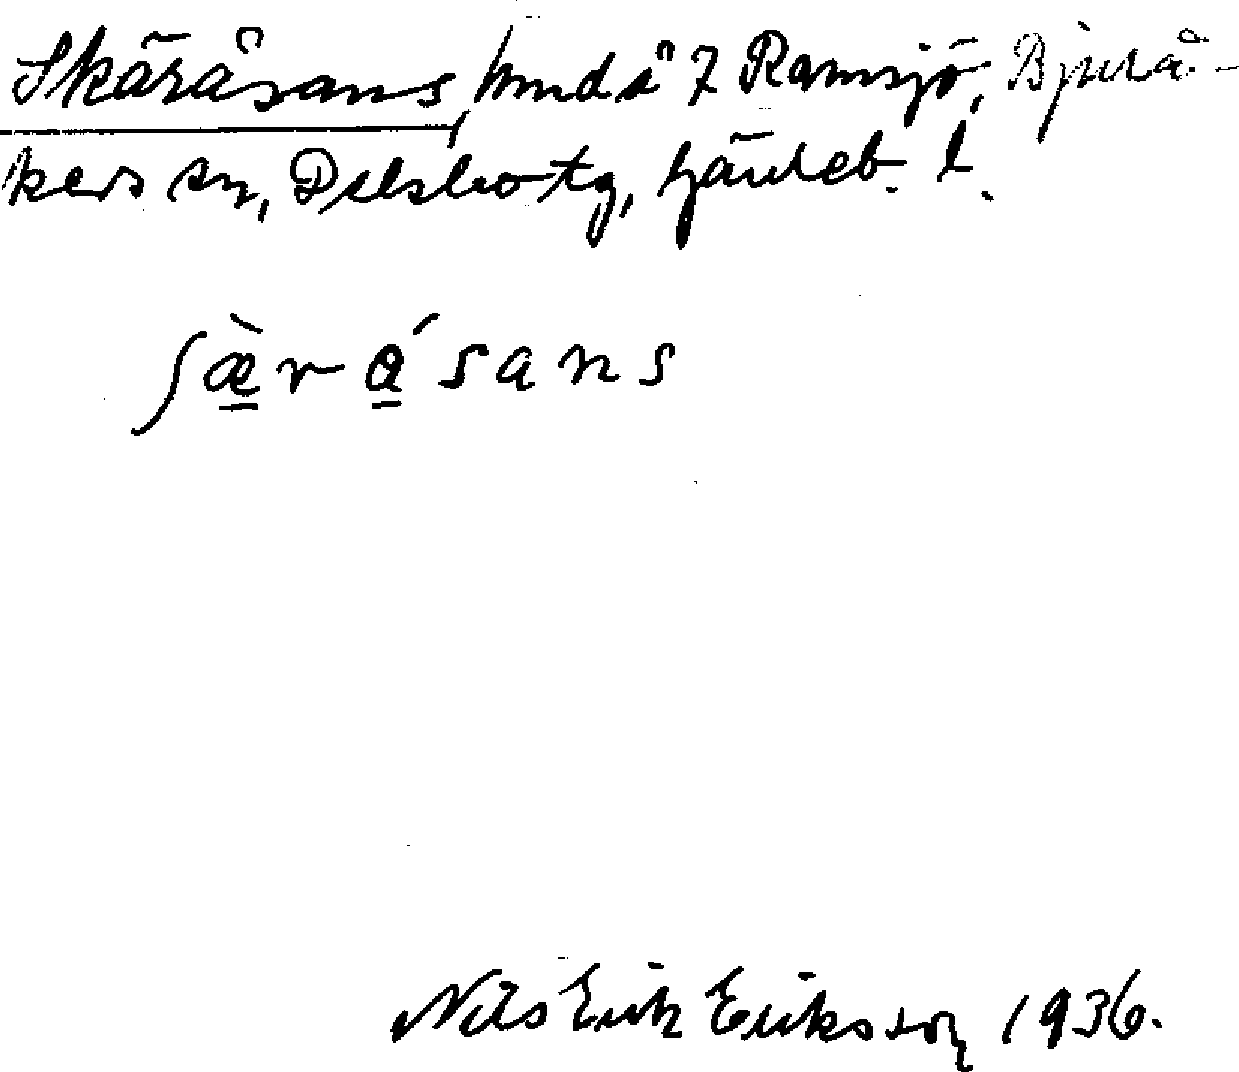 Skäråsans, hmd å 7 Ramsjö, Bjurå-
kers sn, Delsbo tg, Gävleb. l.
ʃæ̠̀r ǻ̠sans
Nils Erik Eriksson 1936.